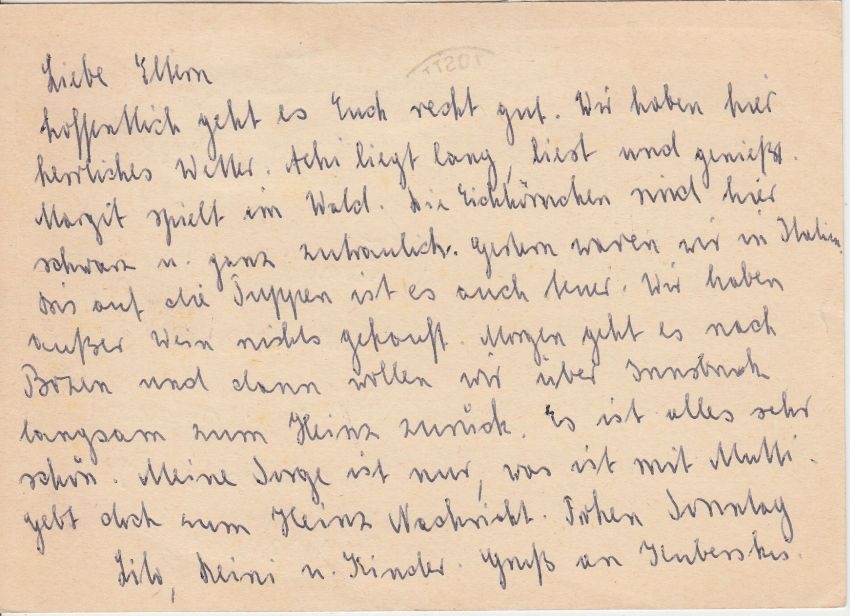 Liebe Eltern
hoffentlich geht es Euch recht gut. Wir haben hier
herrliches Wetter. Achi liegt lang, liest und genießt.
Margit spielt im Wald. Die Eichhörnchen sind hier
schwarz u. ganz zutraulich. Gestern waren wir in Italien.
Bis auf die Puppen ist es auch teuer. Wir haben
außer Wein nichts gekauft. Morgen geht es nach
Bozen und dann wollen wir über Innsbruck
langsam zum Heinz zurück. Es ist alles sehr
schön. Meine Sorge ist nur, was ist mit Mutti.
gebt doch zum Heinz Nachricht. Frohen Sonntag
Lilo, Heini u. Kinder. Gruß an